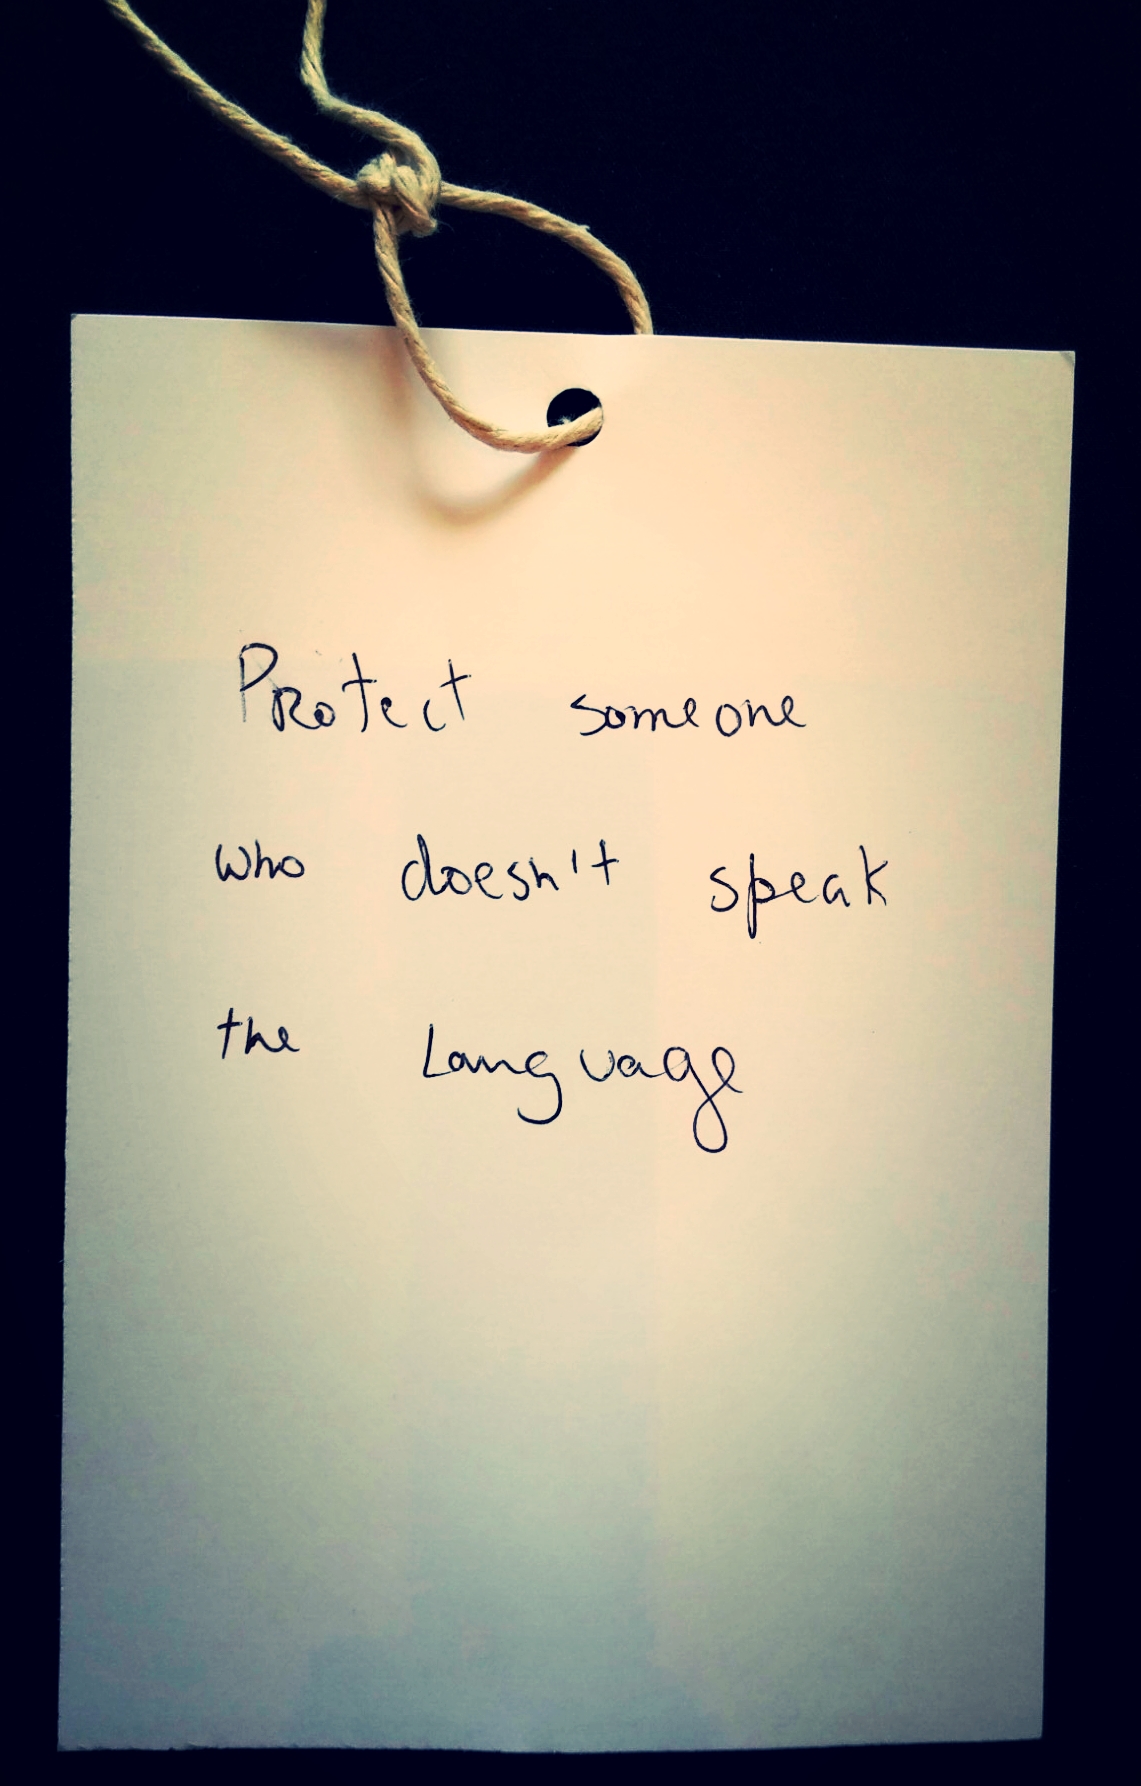 Protect someone
who doesn't speak
the Language